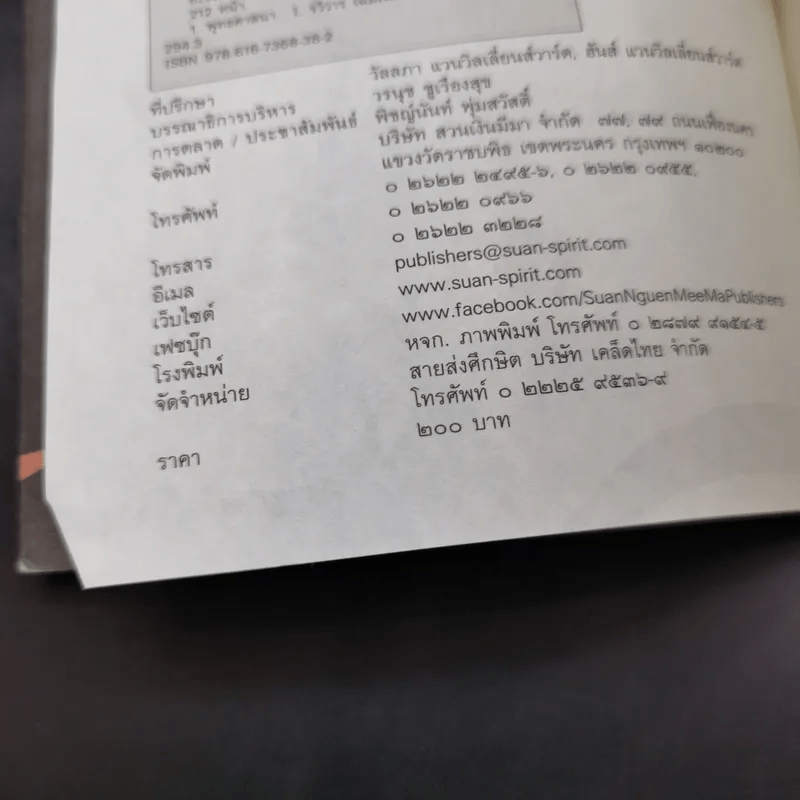 ๒๑๖ หน้า
1. พุทธศาสนา I.
294.3
ISBN 978-616-7368-38-2
ที่ปรึกษา วัลลภา แวนวิลเลี่ยนส์วาร์ด, ฮันส์ แวนวิลเลี่ยนส์วาร์ด
บรรณาธิการบริหาร วรนุช ชูเรืองสุข
การตลาด / ประชาสัมพันธ์ พิชญ์นันท์ พุ่มสวัสดิ์
จัดพิมพ์ บริษัท สวนเงินมีมา จำกัด ๗๗, ๗๙ ถนนเฟื่องนคร
แขวงวัดราชบพิธ เขตพระนคร กรุงเทพฯ ๑๐๒๐๐
โทรศัพท์ ๐ ๒๖๒๒ ๒๔๙๕-๖, ๐ ๒๖๒๒ ๐๙๕๕,
๐ ๒๖๒๒ ๐๙๖๖
โทรสาร ๐ ๒๖๒๒ ๓๒๒๘
อีเมล publishers@suan-spirit.com
เว็บไซต์ www.suan-spirit.com
เฟซบุ๊ก www.facebook.com/SuanNguenMeeMaPublishers
โรงพิมพ์ หจก. ภาพพิมพ์ โทรศัพท์ ๐ ๒๘๗๙ ๙๑๕๔-๕
จัดจำหน่าย สายส่งศึกษิต บริษัท เคล็ดไทย จำกัด
โทรศัพท์ ๐ ๒๒๒๕ ๙๕๓๖-๙
ราคา ๒๐๐ บาท